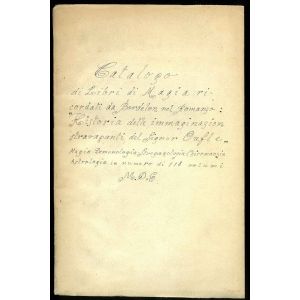 Catalogo
di Libri di Magia ri-
cordati da Bordelon nel Romanzo:
"Historia delle immaginazioni
stravaganti del Signor Oufle"
Magia Demonologia Stregologia Chiromanzia
Astrologia in numero di 118 volumi